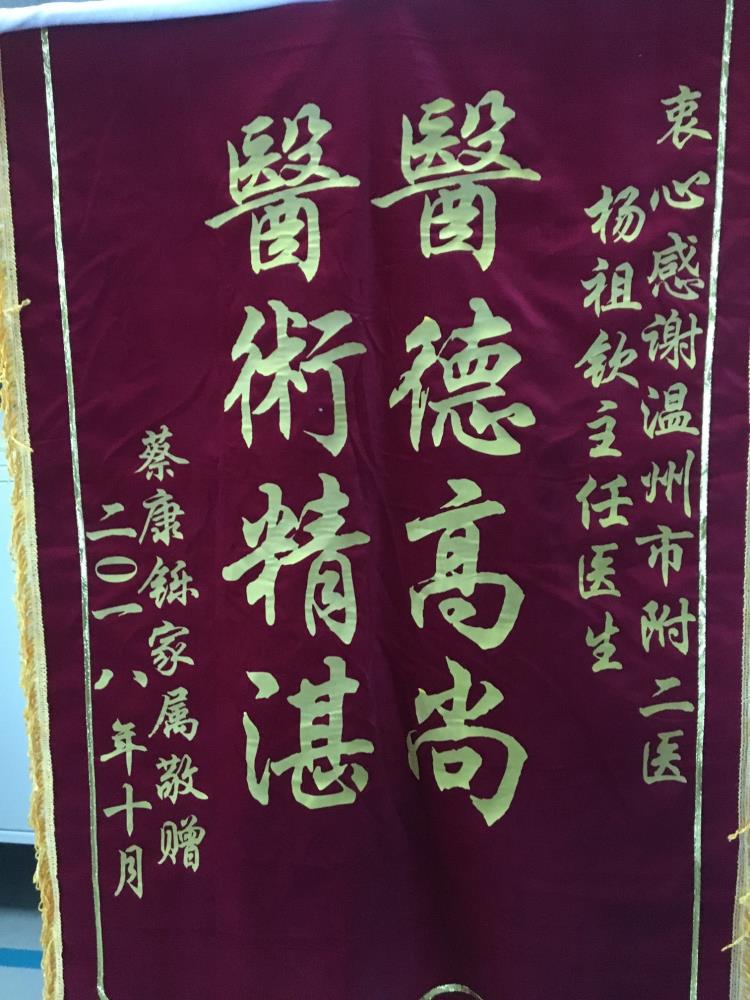 衷心感谢温州市附二医
杨祖钦主任医生
醫德高尚
醫術精湛
蔡康铄家属敬赠
二〇一八年十月